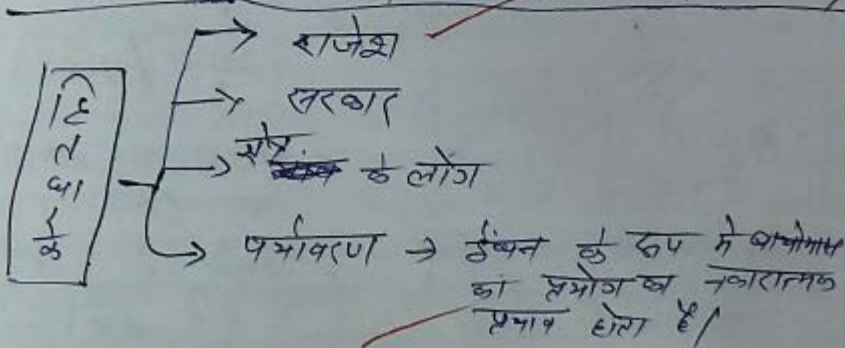 हितधारक
राजेश
सरकार
क्षेत्र के लोग
पर्यावरण → ईंधन के रूप में बायोमास
का प्रयोग का नकारात्मक
प्रभाव होता है।